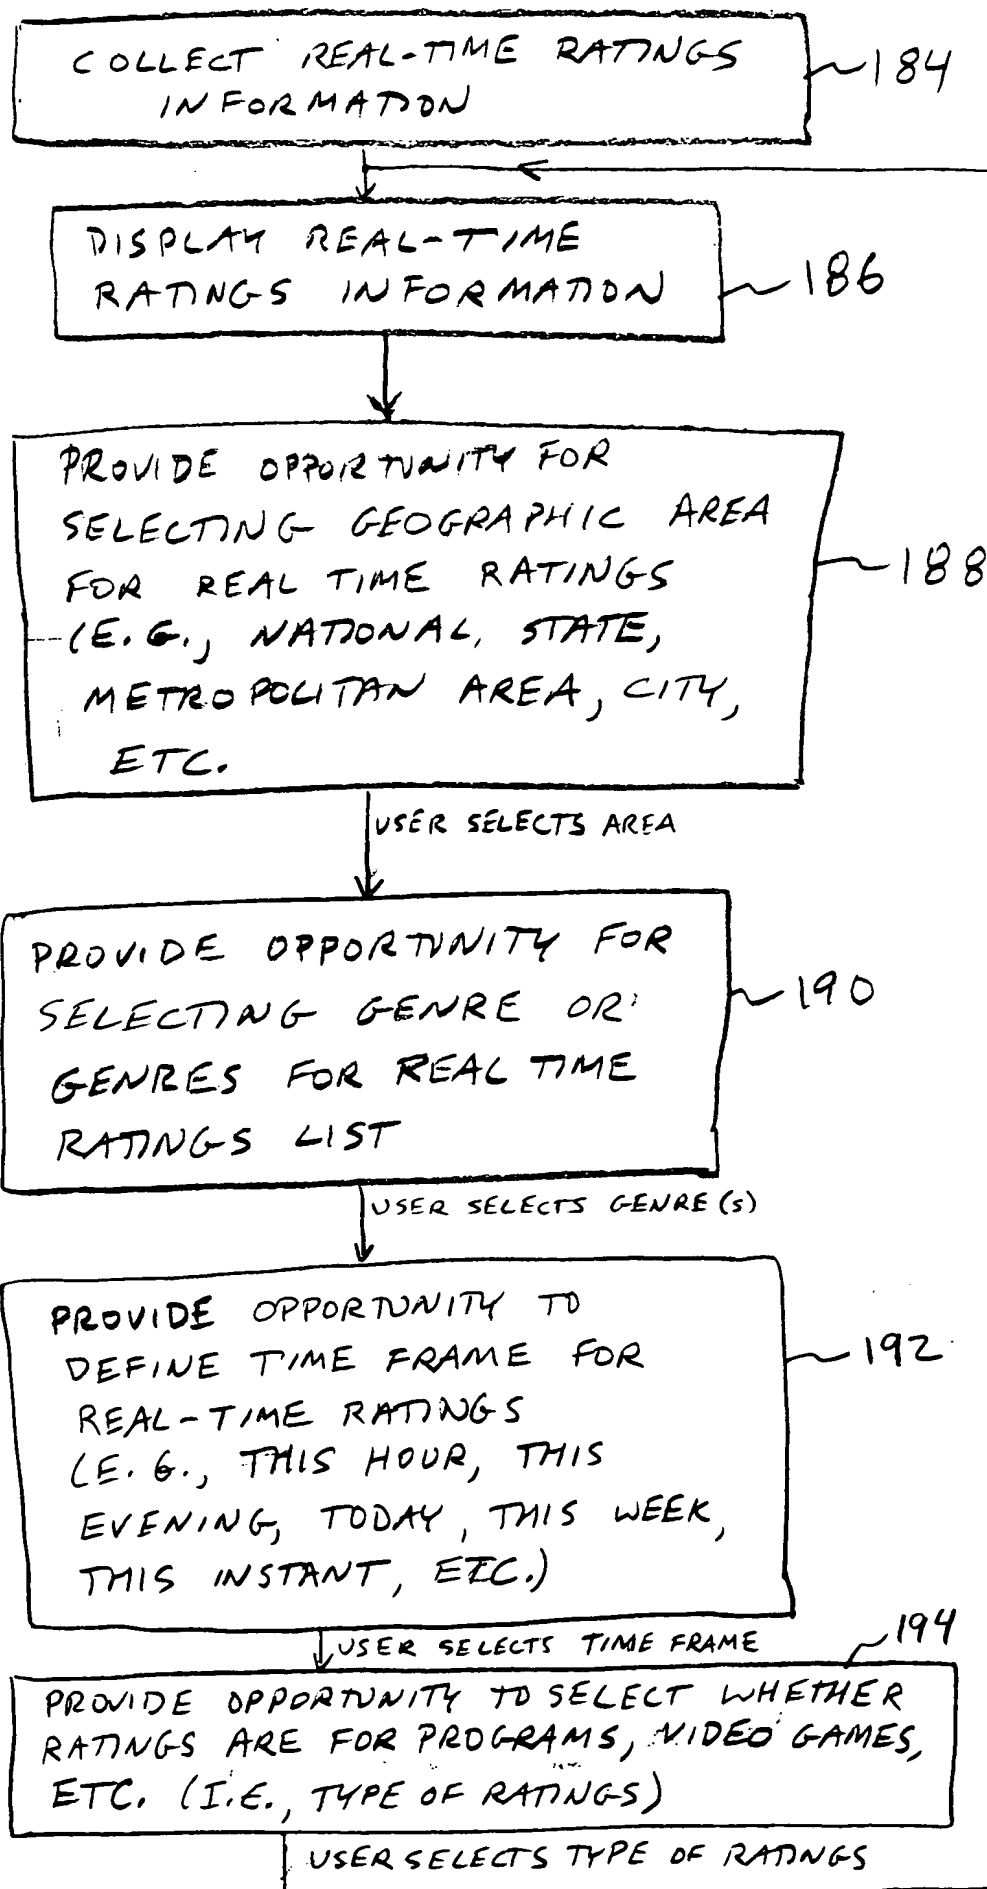 COLLECT REAL-TIME RATINGS
INFORMATION
184
DISPLAY REAL-TIME
RATINGS INFORMATION
186
PROVIDE OPPORTUNITY FOR
SELECTING GEOGRAPHIC AREA
FOR REAL TIME RATINGS
(E.G., NATIONAL, STATE,
METROPOLITAN AREA, CITY,
ETC.
188
USER SELECTS AREA
PROVIDE OPPORTUNITY FOR
SELECTING GENRE OR
GENRES FOR REAL TIME
RATINGS LIST
190
USER SELECTS GENRE(S)
PROVIDE OPPORTUNITY TO
DEFINE TIME FRAME FOR
REAL-TIME RATINGS
(E.G., THIS HOUR, THIS
EVENING, TODAY, THIS WEEK,
THIS INSTANT, ETC.)
192
USER SELECTS TIME FRAME
194
PROVIDE OPPORTUNITY TO SELECT WHETHER
RATINGS ARE FOR PROGRAMS, VIDEO GAMES,
ETC. (I.E., TYPE OF RATINGS)
USER SELECTS TYPE OF RATINGS